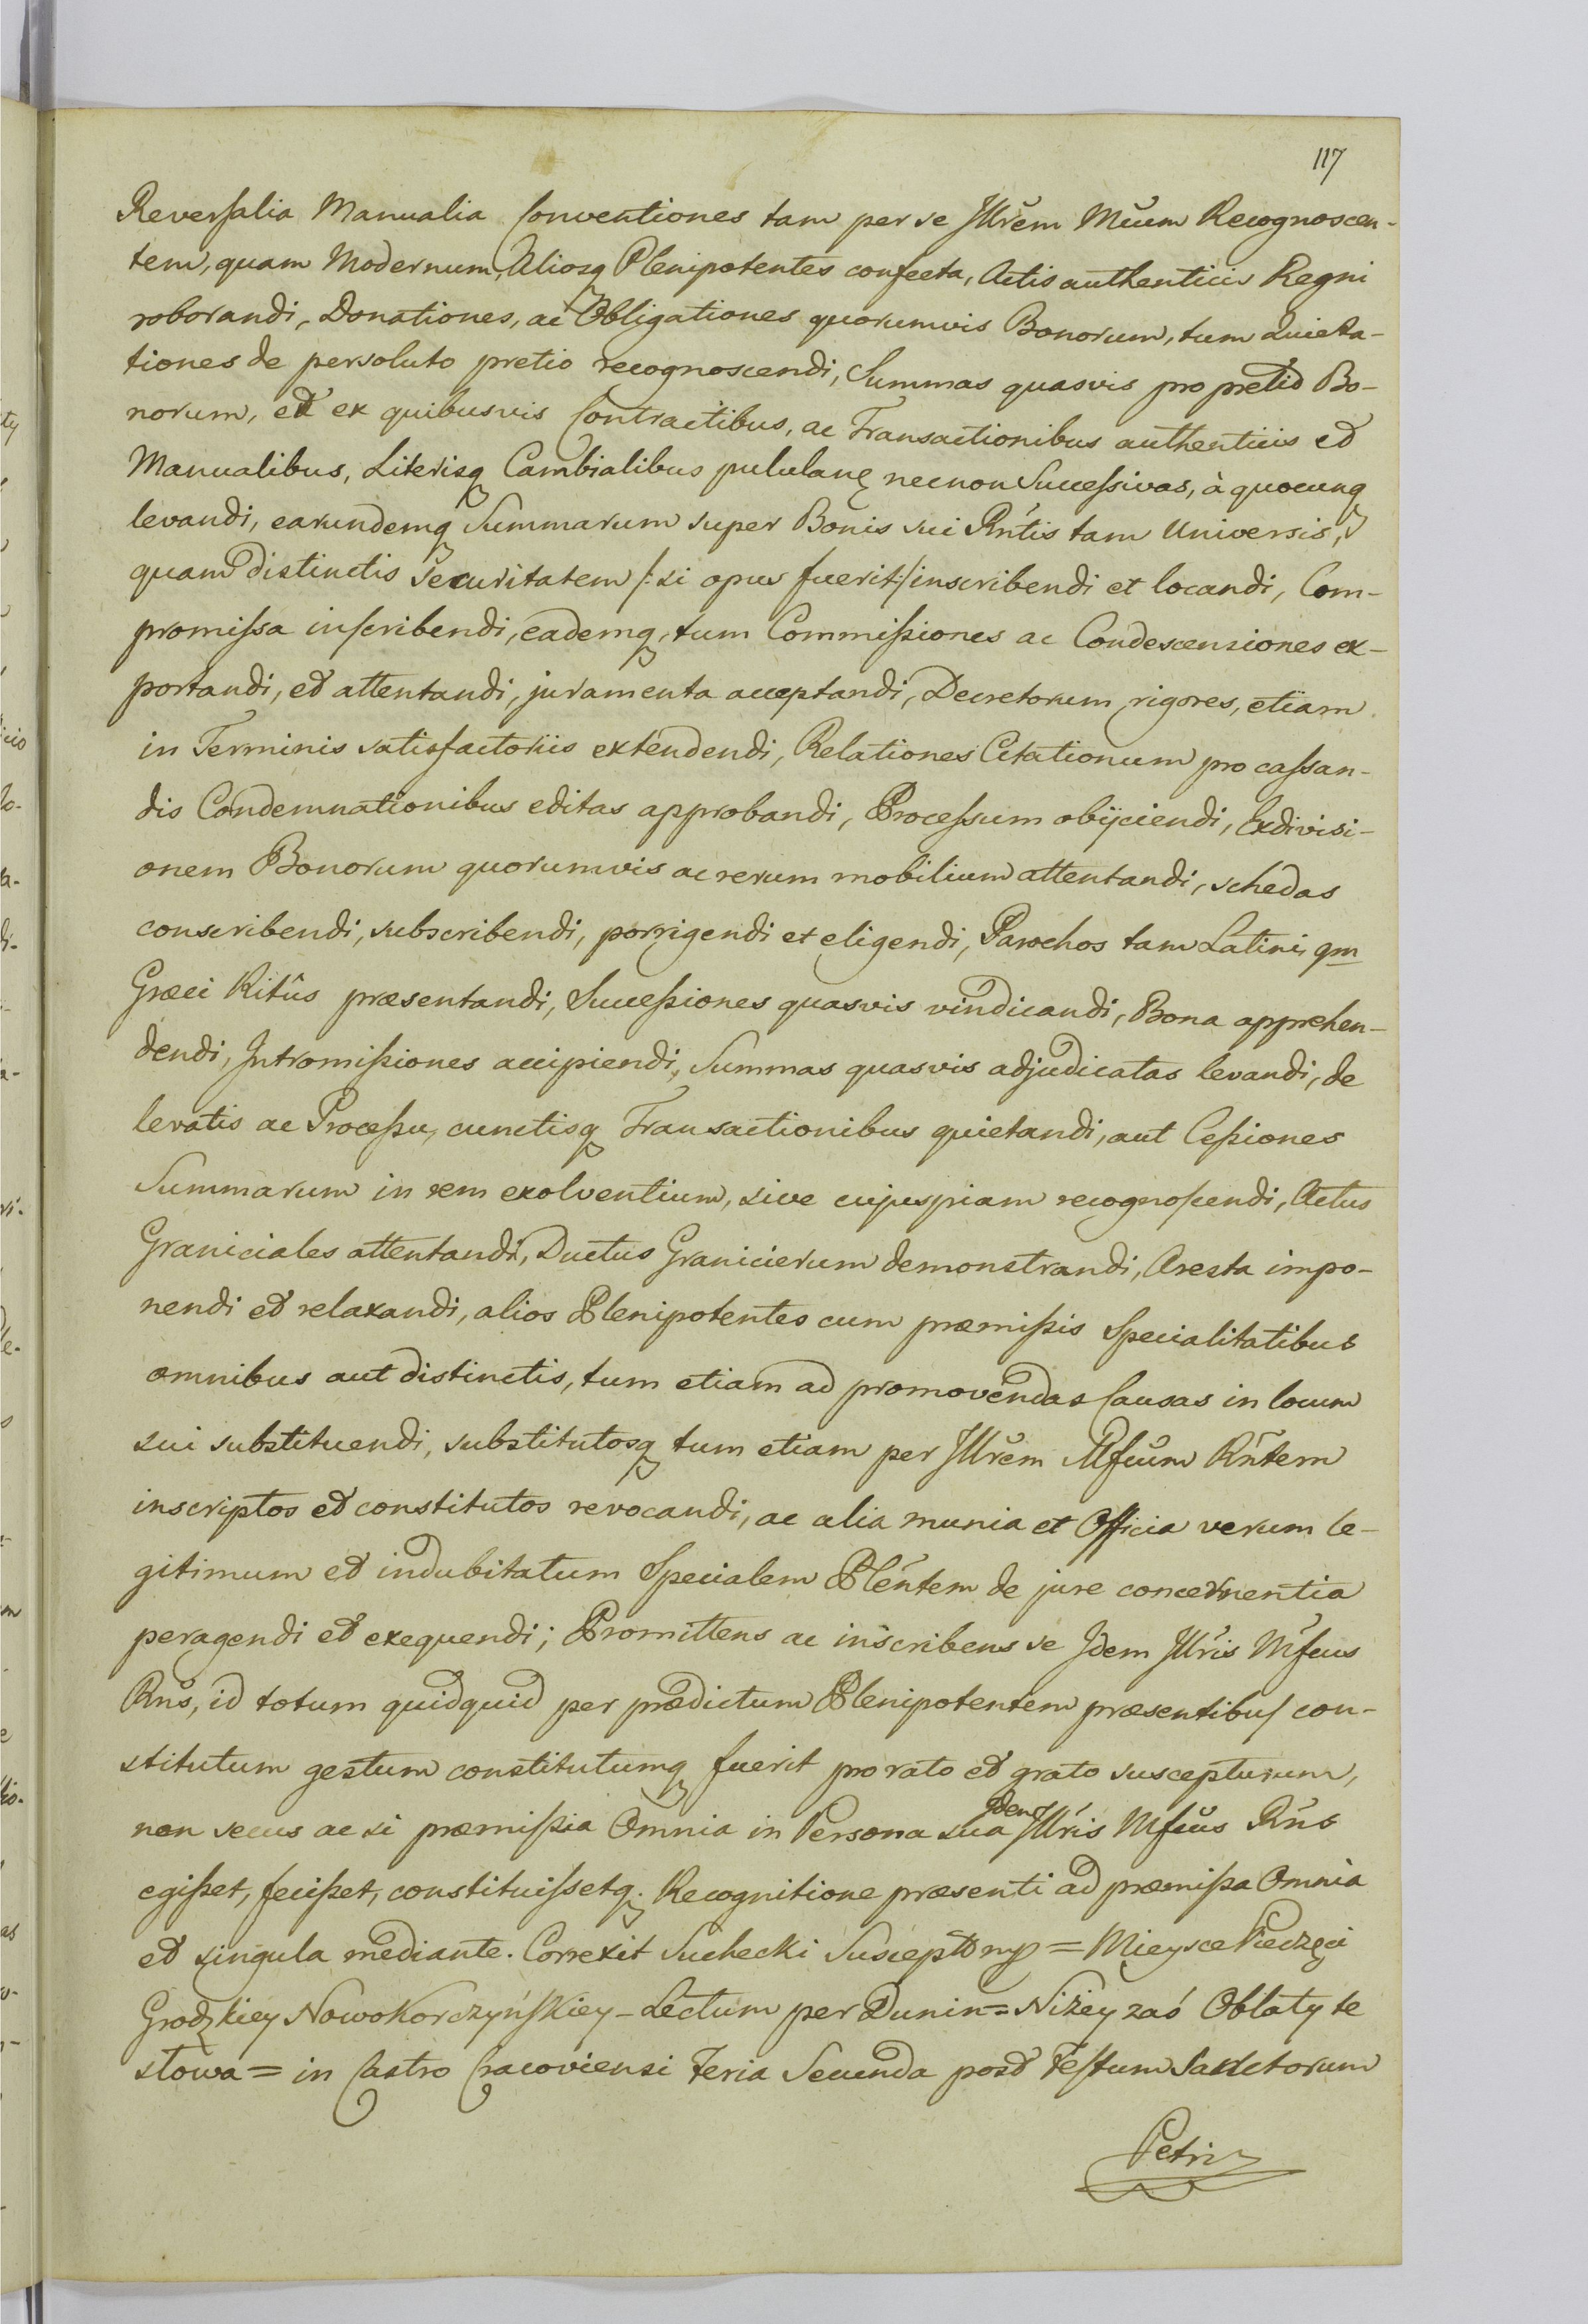 117
Reversalia Manualia Conventiones tam per se Jllrem Mcum Recognoscen-
tem, quam Modernum, Aliosq Plenipotentes confecta, Actis authenticis Regni
roborandi, Donationes, ac Obligationes quorumvis Bonorum, tum Quieta-
tiones de persoluto pretio recognoscendi, Summas quasvis pro pretio Bo-
norum, et ex quibusvis Contractibus, ac Transactionibus authenticis et
Manualibus, Literisq Cambialibus pululanę necnon Succeſsivas, à quocunq
levandi, earundemq Summarum super Bonis sui Rntis tam Universis,
quam distinctis securitatem /: si opus fuerit :/ inscribendi et locandi, Com-
promiſsa inſcribendi, eademq, tum Commiſsiones ac Condescensiones ex-
portandi, et attentandi, juramenta acceptandi, Decretorum rigores, etiam
in Terminis satisfactoriis extendendi, Relationes Citationum pro caſsan-
dis Condemnationibus editas approbandi, Proceſsum obijciendi, Exdivisi-
onem Bonorum quorumvis ac rerum mobilium attentandi, schedas
conscribendi, subscribendi, porrigendi et eligendi, Parochos tam Latini qm
Græci Ritûs præsentandi, Succeſsiones quasvis vindicandi, Bona apprehen-
dendi, Intromiſsiones accipiendi, Summas quasvis adjudicatas levandi, de
levatis ac Proceſsu, cunctisq Transactionibus quietandi, aut Ceſsiones
Summarum in rem exolventium, sive cujuspiam recognoſcendi, Actus
Graniciales attentandi, Ductus Granicierum demonstrandi, Aresta impo-
nendi et relaxandi, alios Plenipotentes cum præmiſsis Specialitatibus
omnibus aut distinctis, tum etiam ad promovendas Causas in locum
sui substituendi, substitutosq tum etiam per Jllrem Mfcum Rntem
inscriptos et constitutos revocandi, ac alia munia et Officia verum le-
gitimum et indubitatum Specialem Plentem de jure concernentia
peragendi et exequendi; Promittens ac inscribens se Jdem Jllris Mfcus
Rns, id totum quidquid per prædictum Plenipotentem præsentibuſ con-
stitutum gestum constitutumq fuerit pro rato et grato suscepturum,
non secus ac si præmiſsia Omnia in Persona sua Jdem Jllris Mfcus Rns
egiſset, feciſset, constituiſsetq. Recognitione præsenti ad præmiſsa Omnia
et singula mediante. Correxit Suchecki = Mieysce Pieczęci
Grodzkiey Nowokorczyńſkiey - Lectum per Dunin = Niżey zaś Oblaty te
słowa = in Castro Cracoviensi Feria Secunda post Feſtum Sanctorum
Petri